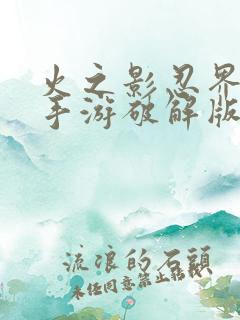 火之影忍界
手游破解版
流浪的石頭
未经同意禁止转载